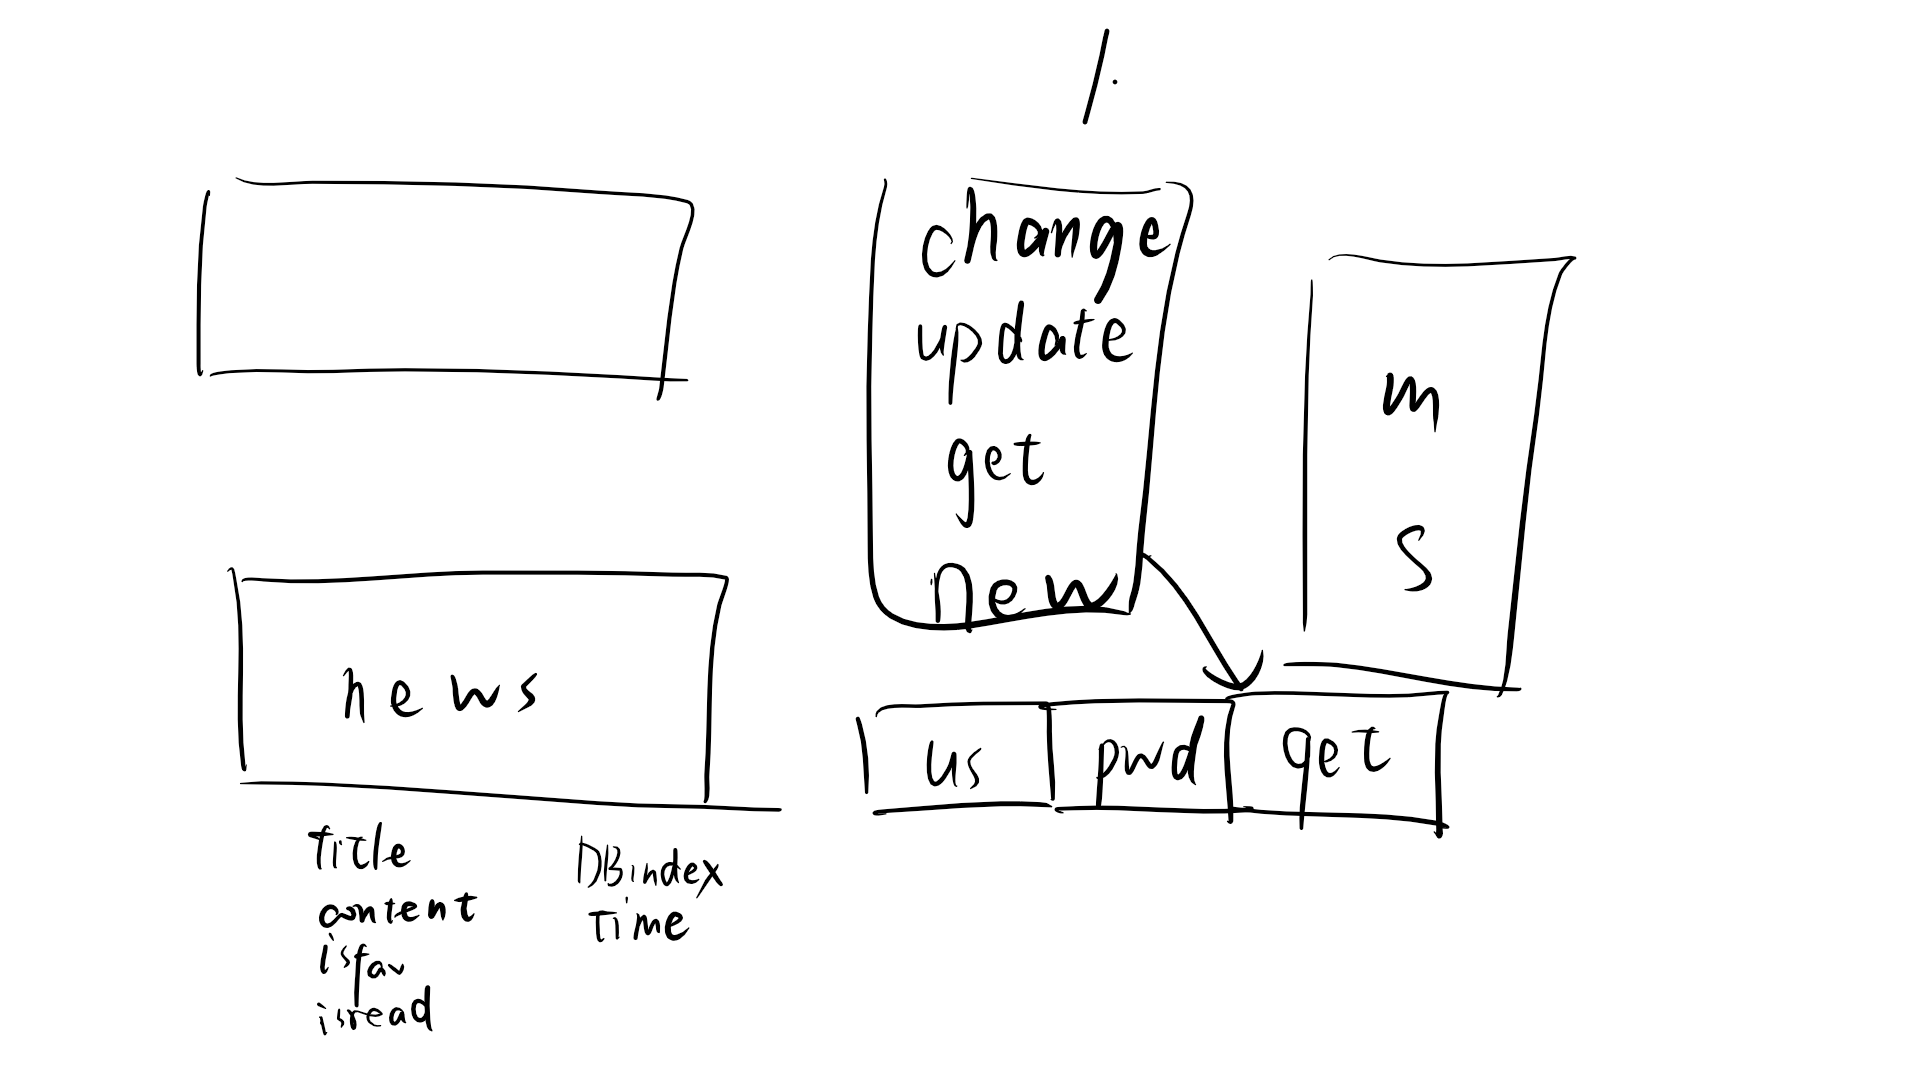 change
update
get
new
m
S
news
us
pwd
get
Title
content
isfav
isread
DBindex
Time